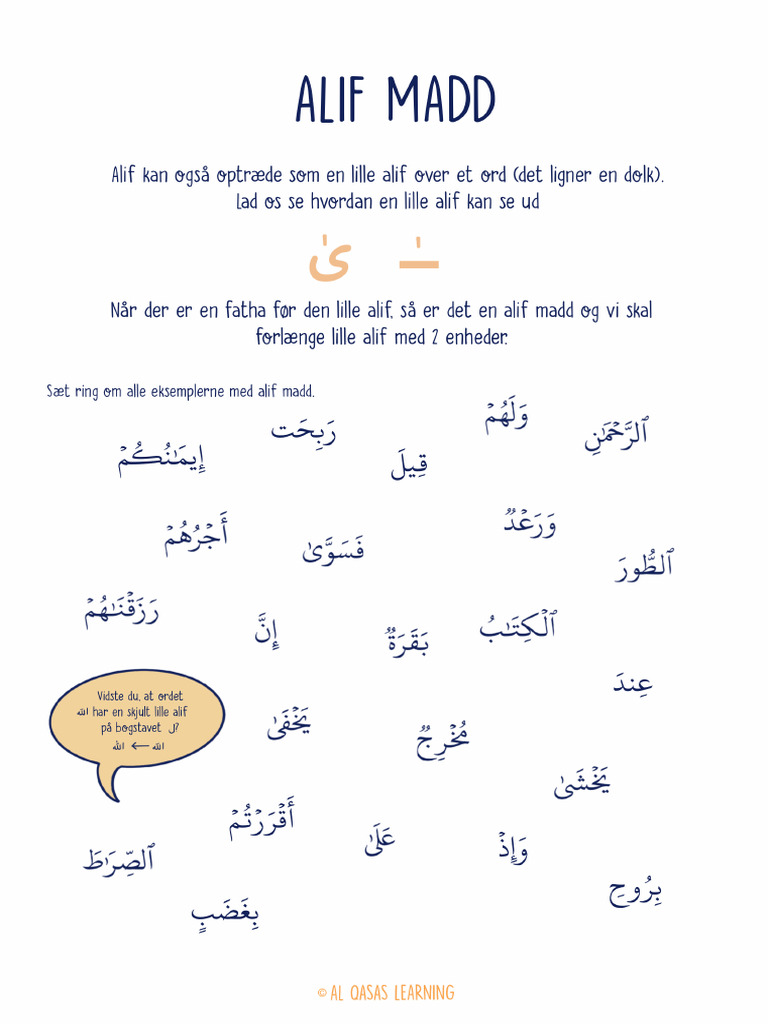 ALIF MADD
Alif kan også optræde som en lille alif over et ord (det ligner en dolk).
Lad os se hvordan en lille alif kan se ud
ىٰ ـٰ
Når der er en fatha før den lille alif, så er det en alif madd og vi skal
forlænge lille alif med 2 enheder.
Sæt ring om alle eksemplerne med alif madd.
ٱلرَّحْمَٰنِ
وَلَهُمْ
رَبِحَت
قِيلَ
إِيمَٰنُكُمْ
وَرَعْدٌ
أَجْرُهُمْ
فَسَوَّىٰ
ٱلطُّورَ
رَزَقْنَٰهُمْ
ٱلْكِتَٰبُ
إِنَّ
بَقَرَةٌ
عِندَ
Vidste du, at ordet
الله har en skjult lille alif
på bogstavet ل?
الله ← الله
يَخْفَىٰ
مُخْرِجٌ
يَخْشَىٰ
أَقْرَرْتُمْ
عَلَىٰ
وَإِذْ
ٱلصِّرَٰطَ
بِرُوحِ
بِغَضَبٍ
© AL QASAS LEARNING